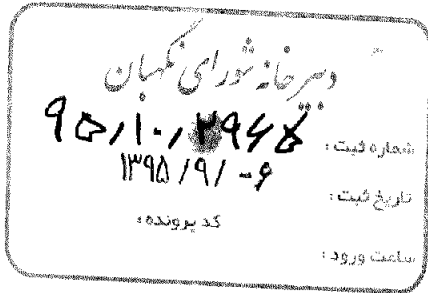 دبیرخانه شورای نگهبان
شماره ثبت: ۹۵/۱۰/۲۹۶۵
تاریخ ثبت: ۱۳۹۵/۹/۰۶
کد پرونده:
ساعت ورود: